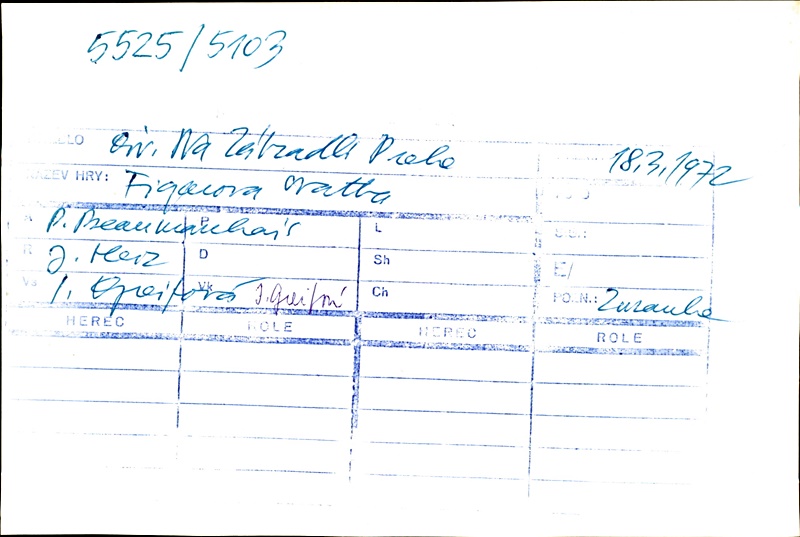 5525/5103
Div. Na Zábradlí Praha 18.3.1972
NÁZEV HRY: Figarova svatba
A P. Beaumarchais P L
R J. Herz D Sh E/
Vs I. Greifová Vk I. Greifová Ch PO.N.:
HEREC ROLE HEREC ROLE